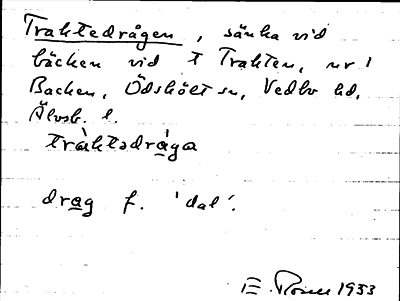 Traktedrågen, sänka vid
bäcken vid t Trakten, nr 1
Backen, Ödskölt sn, Vedbo hd,
Älvsb. l.
tràktədråga
drag f. 'dal'.
E. Rosell 1933